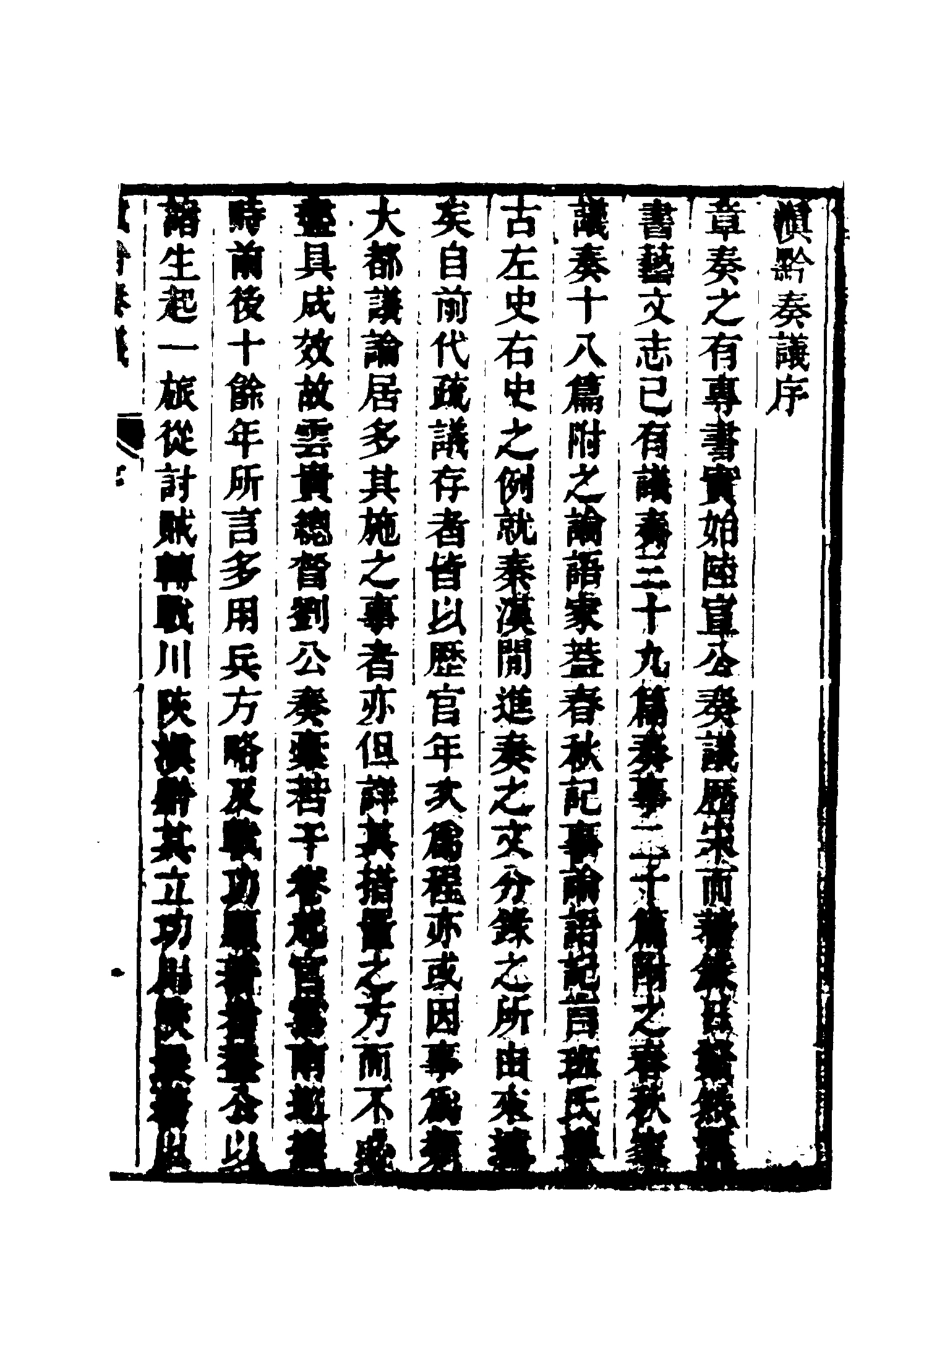 滇黔奏議序
章奏之有專書實始陸宣公奏議歷宋而著錄日緐然漢
書藝文志已有議奏三十九篇奏事二十篇附之春秋家
議奏十八篇附之論語家蓋春秋記事論語記言班氏舉
古左史右史之例就秦漢閒進奏之文分錄之所由來舊
矣自前代疏議存者皆以歷官年次爲程亦或因事爲類
大都議論居多其施之事者亦但詳其措置之方而不必
盡具成效故雲貴總督劉公奏稾若干卷起官雲南巡撫
時前後十餘年所言多用兵方略及戰功顯著者蓋公以
諸生起一旅從討賊轉戰川陝滇黔其立功